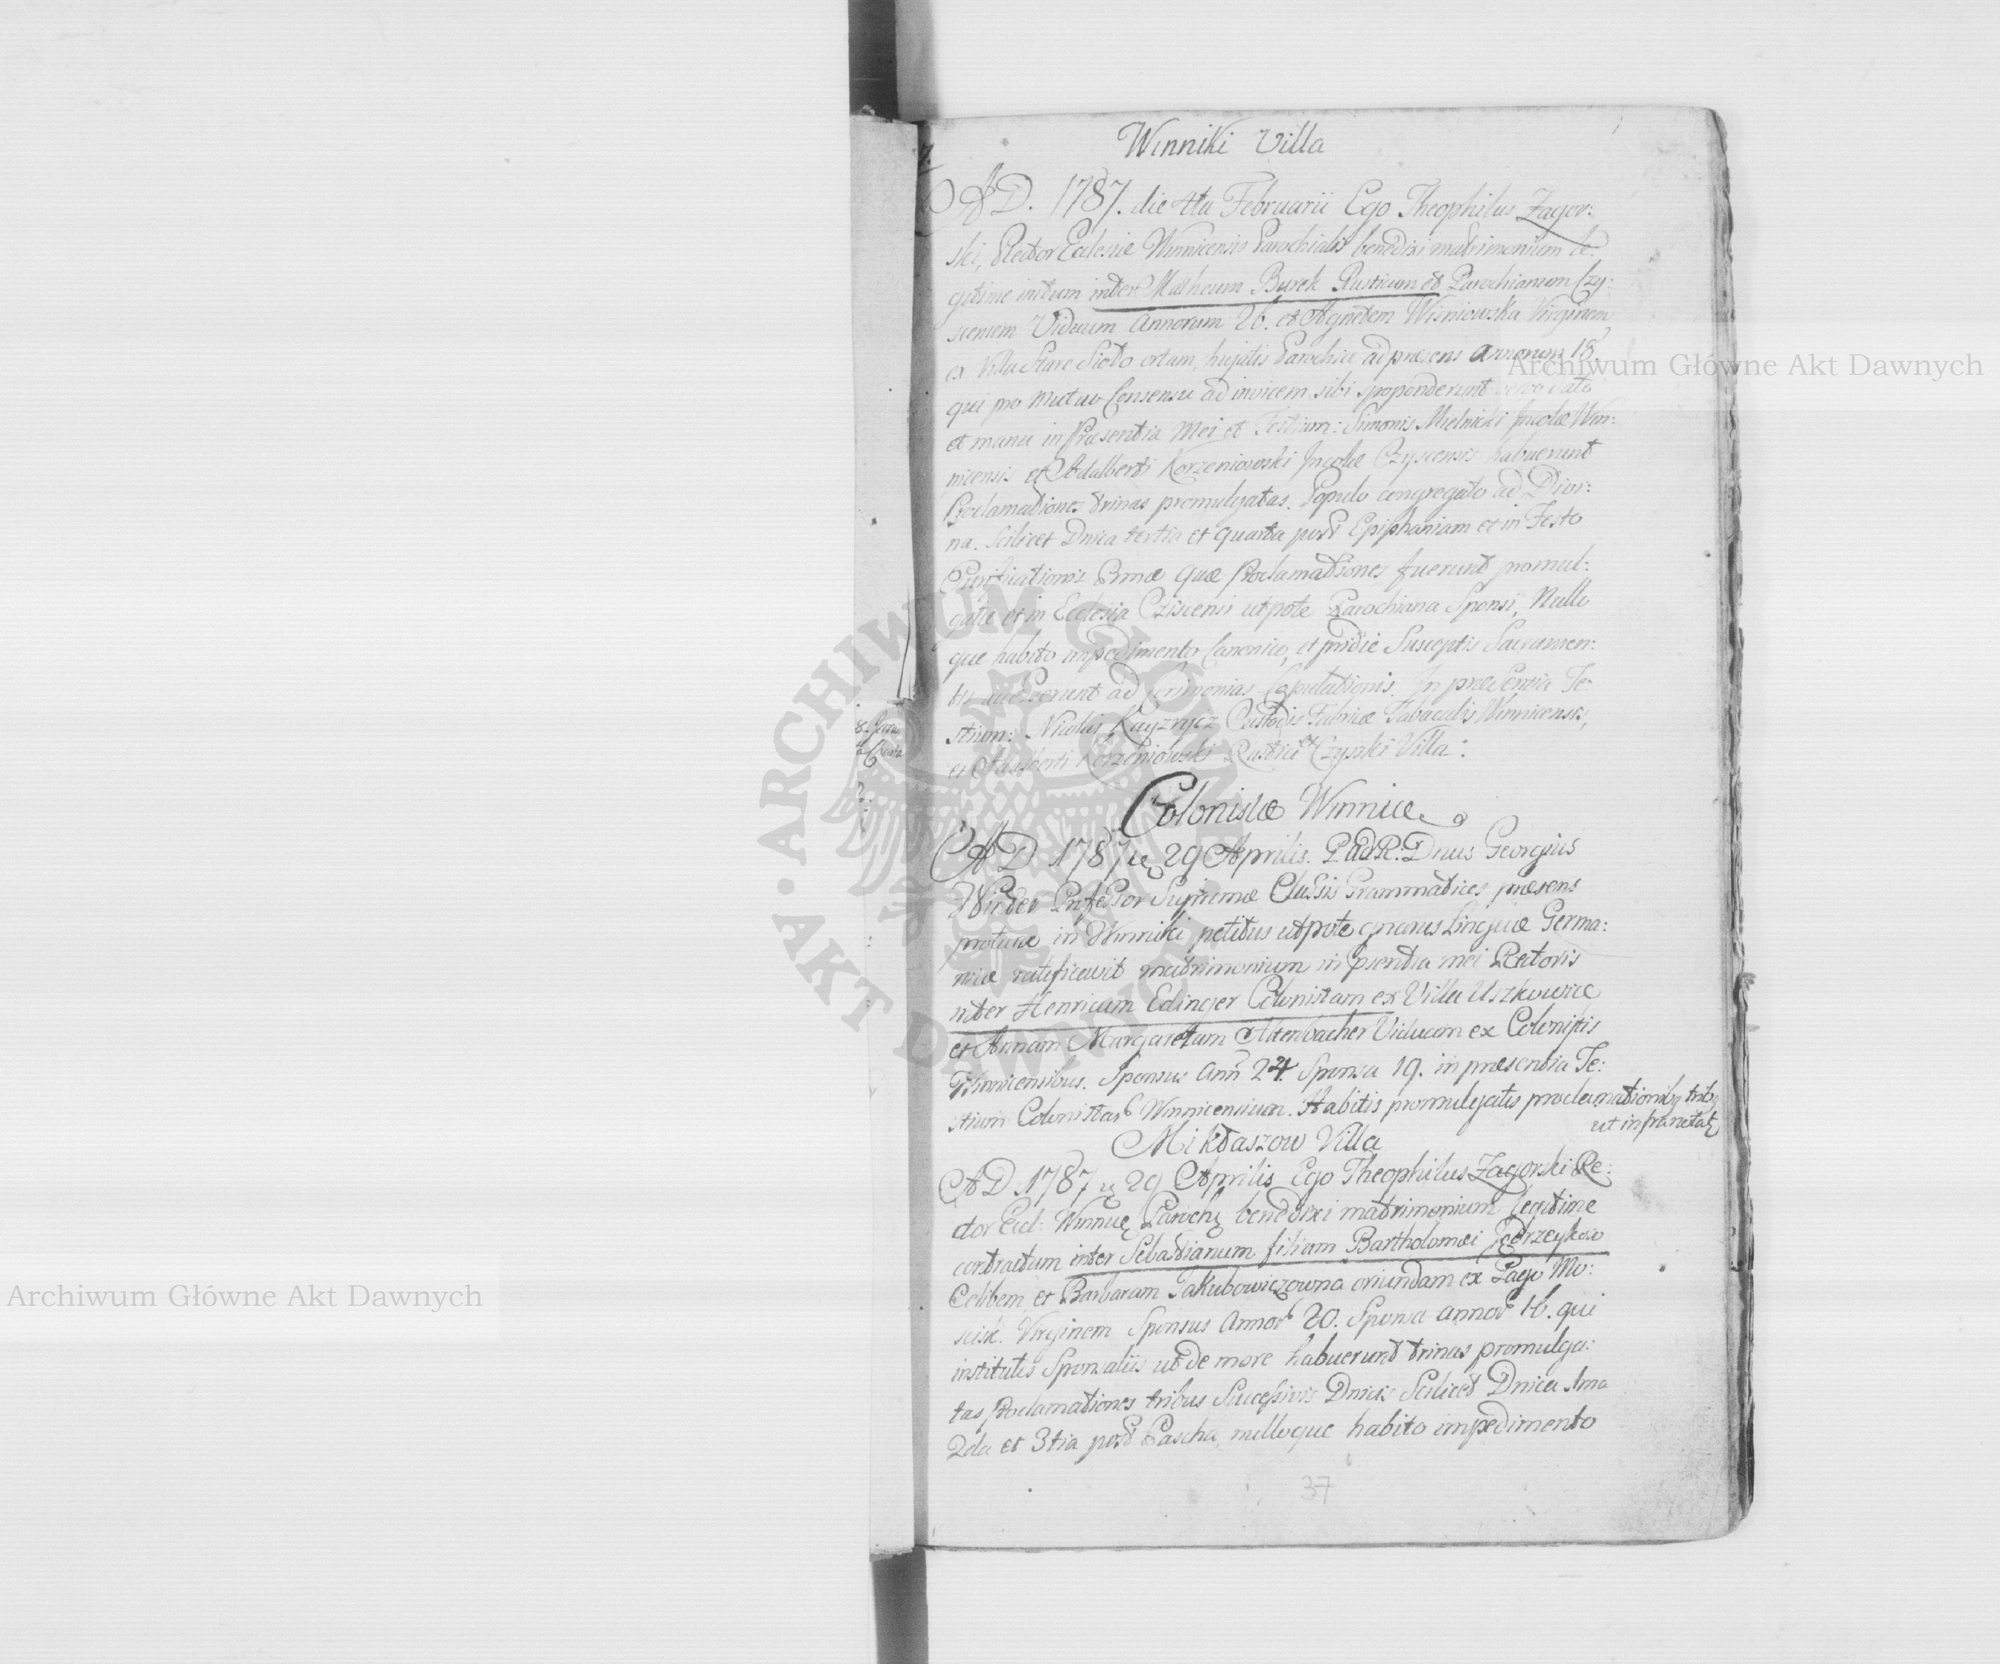 Winniki Villa
AD. 1787. die 4ta Februarii Ego Theophilus Zagor:
ski, Rector Ecclesiæ Winnicensis Parochialis benedixi matrimonium le:
gitime initum inter Matheum Burek Rusticum et Parochianum Czy:
scensem Viduum Annorum 26. et Agnetem Wisniowska Virginem
ex Villa Stare Sioło ortam, hujatis Parochiæ ad præsens annorum 18.
qui pro mutuo Consensu ad invicem sibi spoponderunt verbo dato
et manu in Præsentia Mei et Testium: Simonis Mielnicki Incolæ Win:
nicensis et Adalberti Korzeniowski Incolæ Czyscensis habuerunt
Proclamationes trinas promulgatas. Populo congregato ad Divi:
na. Scilicet Dnica tertia et quarta post Epiphaniam et in Festo
Purificationis Bmæ quæ Proclamationes fuerunt promul:
gatæ et in Ecclesia Cziscensi utpote Parochiana Sponsi, Nullo
que habito impedimento Canonico, et pridie Susceptis Sacramen:
tis accesserunt ad Cerimonias Copulationis. In præsentia Te:
stium: Nicolai Custodis Fabricæ Tabaculis Winnicensis,
et Adalberti Korzeniowski Rustici et Czyszki Villa.
8. Janu
Colonistæ Winnice
AD. 1787 29 Aprilis. P. adR: Dnus Georgius
Professor Supremæ Classis Grammatices præsens
protunc in Winniki petitus utpote gnarus Linguæ Germa:
nicæ ratificavit matrimonium in psentia mei Rectoris
inter Henricum Edinger Colonistam ex Villa Uszkowice
et Annam Margaretam Altenbacher Viduam ex Colonistis
Winnicensibus. Sponsus Ann 24. Sponsa 19. in præsentia Te:
stium Colonistar Winnicensium. Habitis promulgatis proclamationib trib
ut infra notat
Mikłaszow Villa
AD. 1787 29 Aprilis Ego Theophilus Zagorski Re:
ctor Eccl: Winnic Paroch benedixi matrimonium legitime
contractum inter Sebastianum filium Bartholomæi Jędrzeykow
Celibem, et Barbaram Jakubowiczowna oriundam ex Pago Mo:
scisk. Virginem Sponsus Annor 20. Sponsa annor 16. qui
institutis Sponsaliis ut de more habuerunt trinas promulga:
tas Proclamationes tribus Successivis Dnicis Scilicet Dnica 1ma
2da et 3tia post Pascha, nulloque habito impedimento
37
Archiwum Główne Akt Dawnych
Archiwum Główne Akt Dawnych
ARCHIWUM GŁÓWNE · AKT DAWNYCH ·